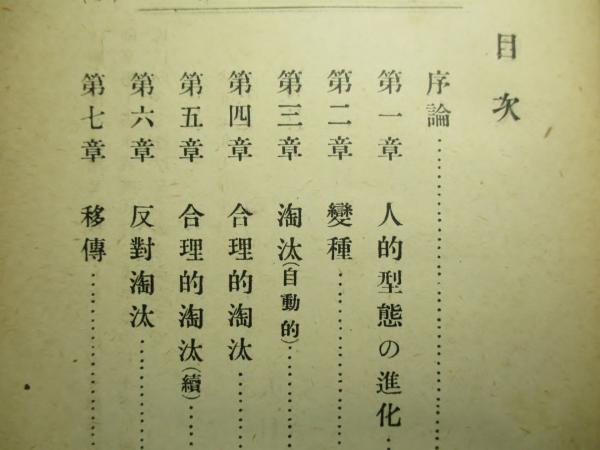 目次
序論
第一章 人的型態の進化
第二章 變種
第三章 淘汰(自動的)
第四章 合理的淘汰
第五章 合理的淘汰(續)
第六章 反對淘汰
第七章 移傳